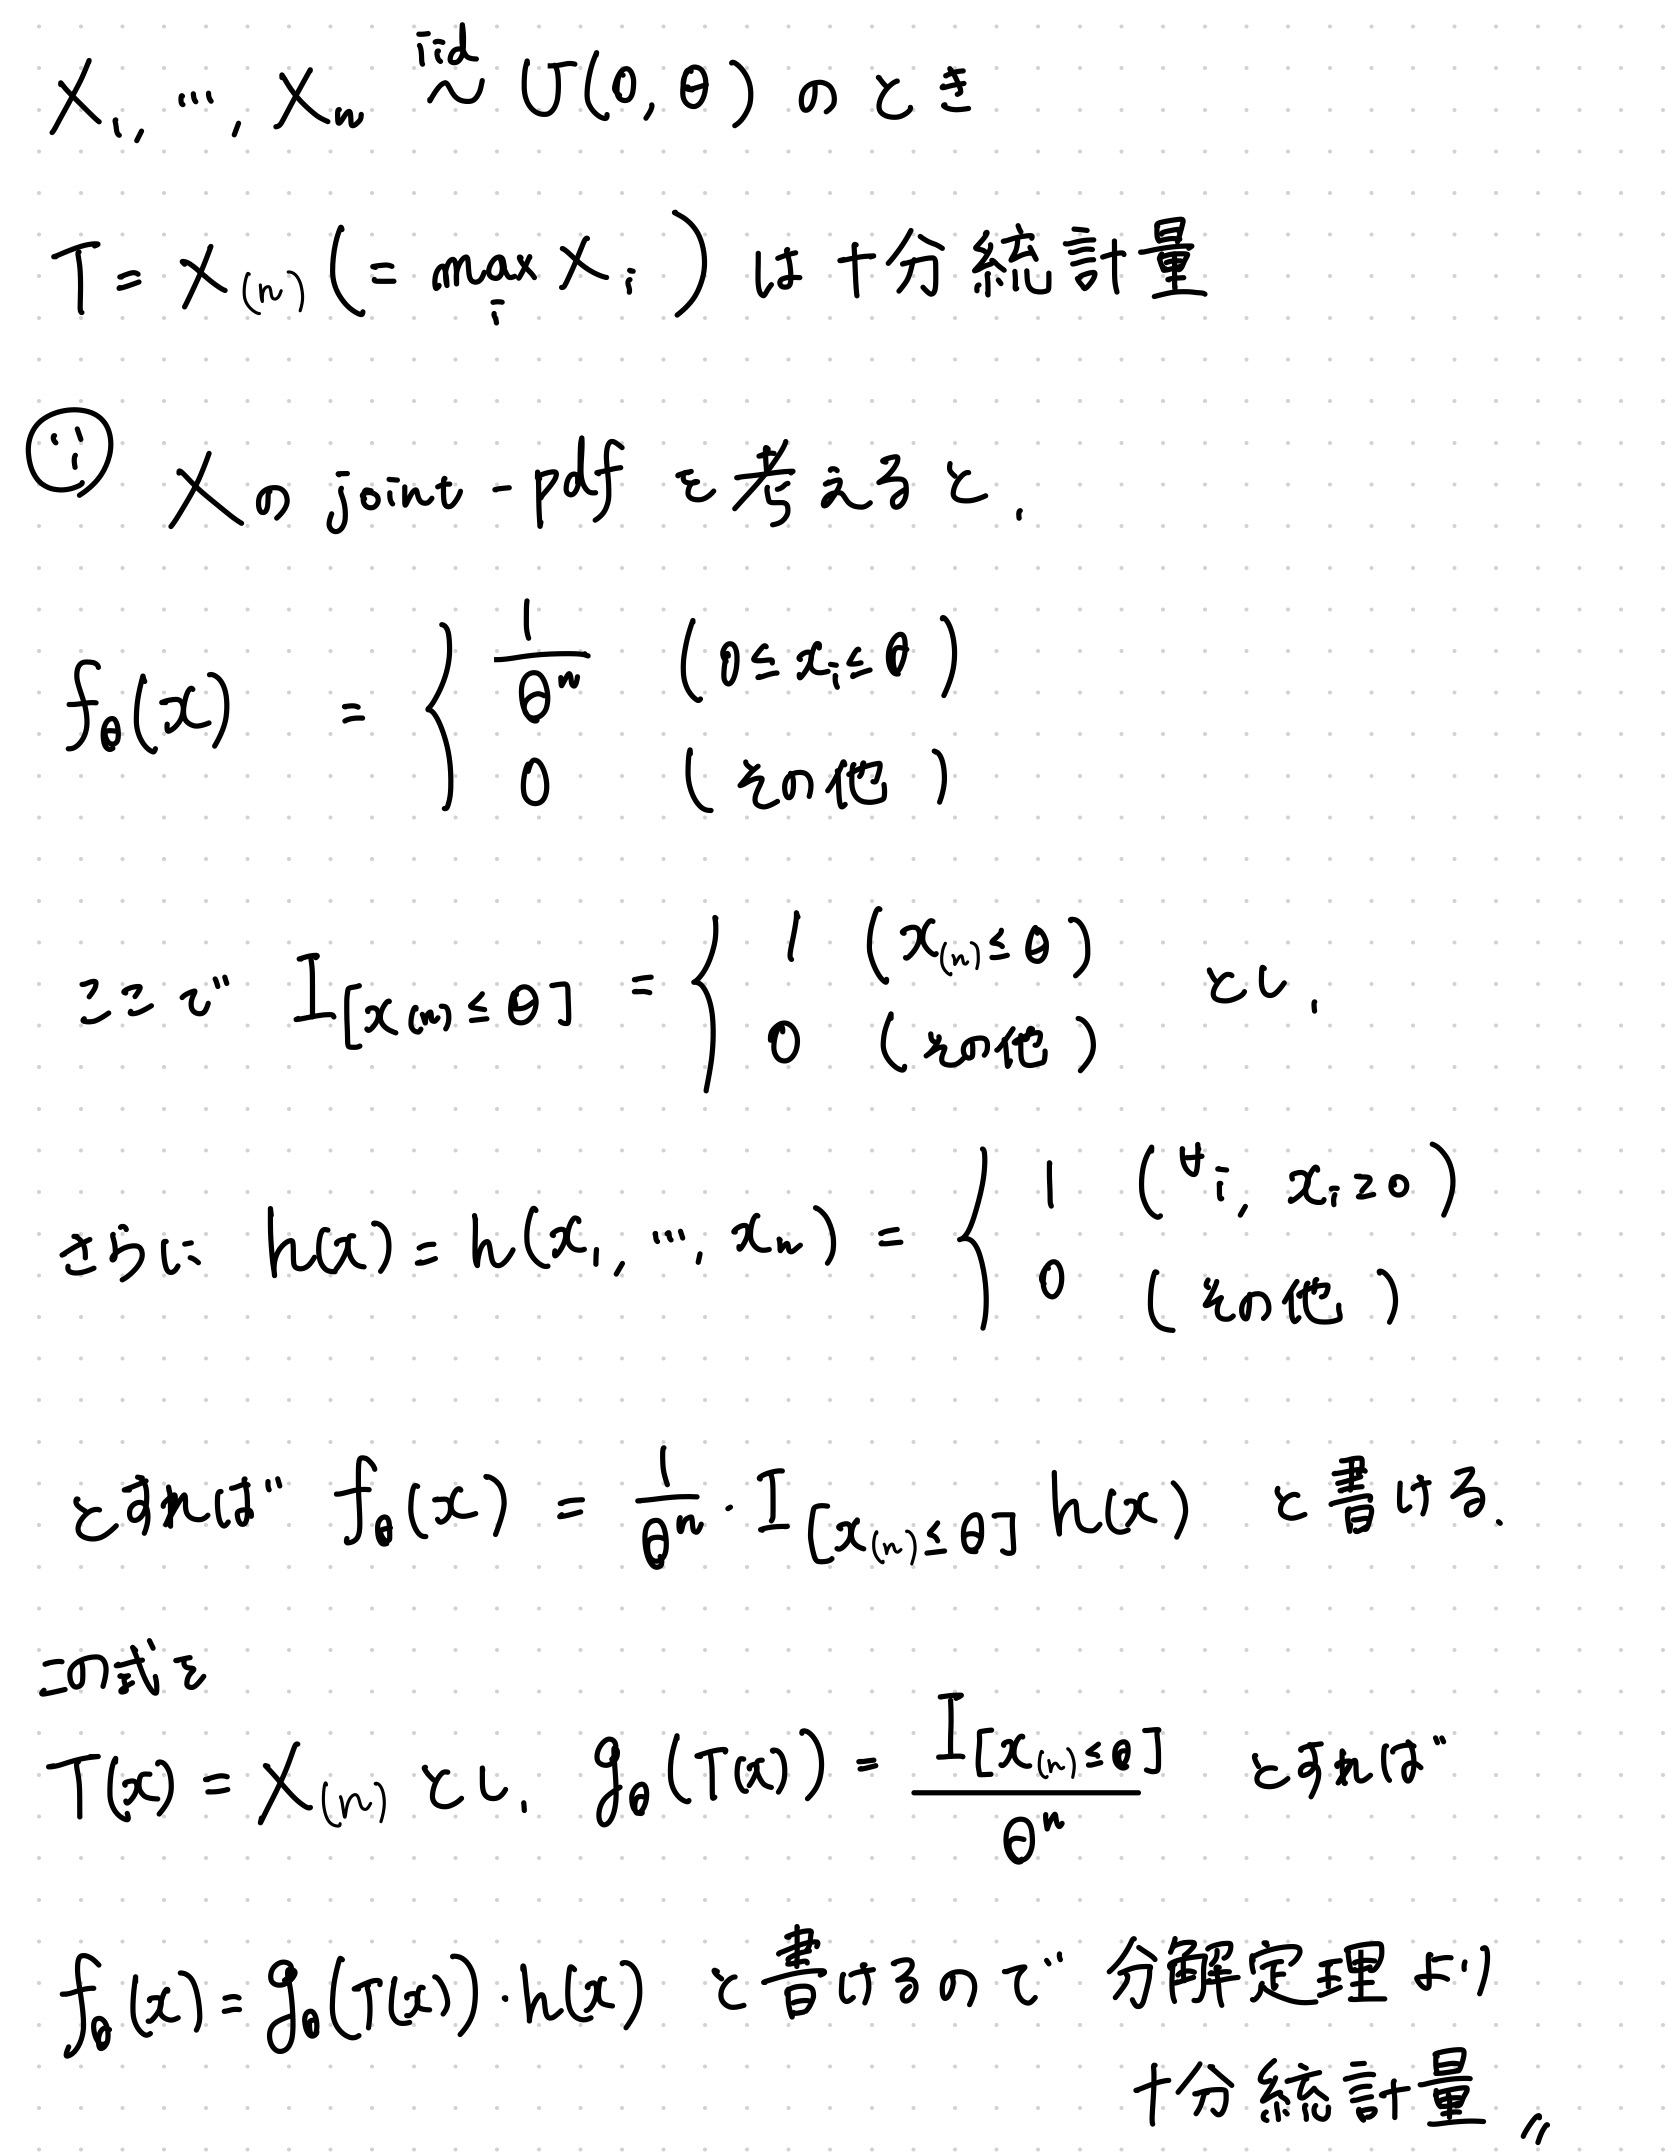 X₁, …, Xₙ iid~ U(0, θ) のとき
T = X₍ₙ₎ (= max_i X_i) は十分統計量
Xの joint-pdf を考えると,
f_θ(x) = { 1/θⁿ (0≤x_i≤θ)
0 (その他)
ここで I_[x₍ₙ₎≤θ] = { 1 (x₍ₙ₎≤θ)
0 (その他) とし,
さらに h(x) = h(x₁, …, xₙ) = { 1 (∀i, x_i≥0)
0 (その他)
とすれば f_θ(x) = 1/θⁿ · I_[x₍ₙ₎≤θ] h(x) と書ける.
この式を
T(x) = X₍ₙ₎ とし, g_θ(T(x)) = I_[x₍ₙ₎≤θ] / θⁿ とすれば
f_θ(x) = g_θ(T(x))·h(x) と書けるので 分解定理より
十分統計量 〃